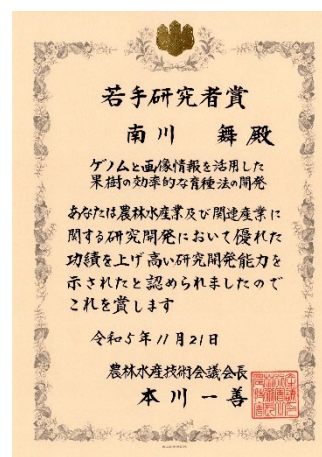 若手研究者賞
南川 舞 殿
ゲノムと画像情報を活用した
果樹の効率的な育種法の開発
あなたは農林水産業及び関連産業に
関する研究開発において優れた
功績を上げ高い研究開発能力を
示されたと認められましたので
これを賞します
令和5年11月21日
農林水産技術会議会長
本川一善